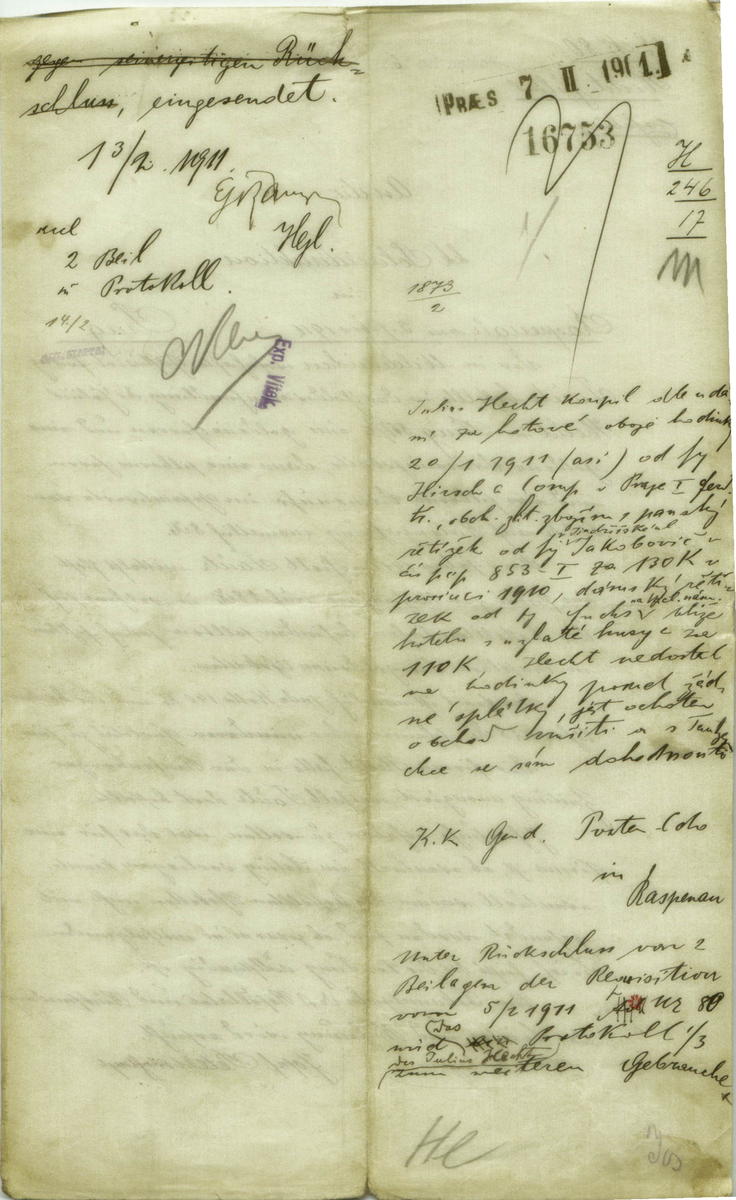 gegen seinerzeitigen Rück-
schluss, eingesendet.
13/2. 1911.
Hgl.
und
2 Beil
u Protokoll.
14/2
Exp. Vitek
PRÆS 7 II. 1911.
16753
H
246
17
1873
2
Julius Hecht koupil dle udá-
ní za hotové oboje hodinky
20/1 1911 (asi) od fy
Hirsch a Comp v Praze I
tř., obch. zlat. zbožím, panský
řetízek od fy Jakobovič v
v Jindřišské ul
čís pop 853-I za 130 K v
prosinci 1910, dámský řetí-
zek od fy Fuchs blíže
na Václ. nám.
hotelu u zlaté husy za
110 K, Hecht nedostal
na hodinky posud žád
né splátky, jest ochoten
obchod zrušiti a s
chce se sám dohodnouti
K.K Gend. Posten-Cdo
in
Raspenau
Unter Rückschluss von 2
Beilagen der Requisition
vom 5/2 1911 Nr 80
wird das Protokoll 1/3
des Julius Hecht
zum weiteren Gebrauche